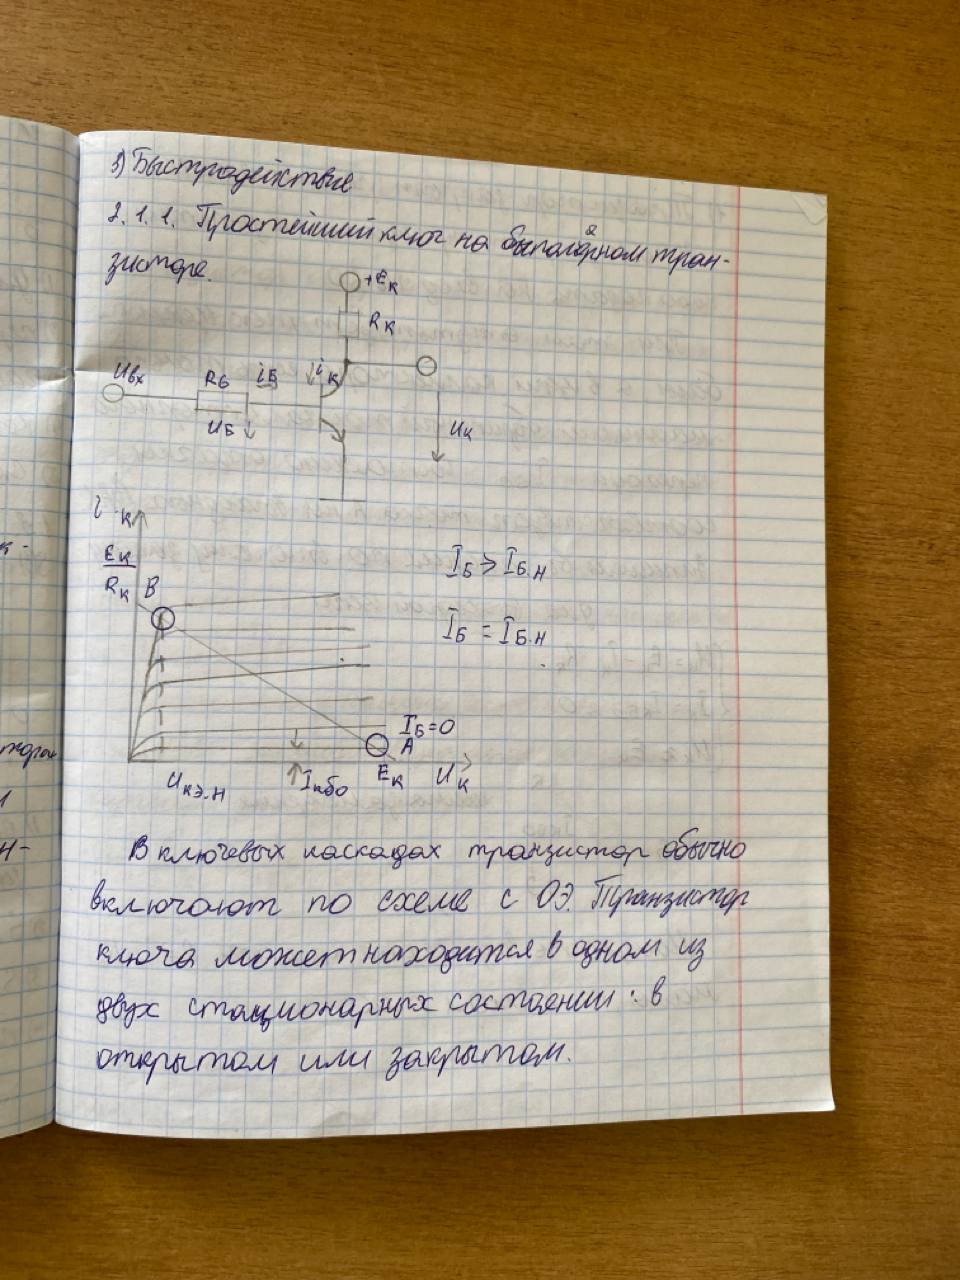 3) Быстродействие
2.1.1. Простейший ключ на биполярном тран-
зисторе.
+Eк
Rк
Uвх
Rб
iб
iк
Uб
Uк
iк
Eк
Rк
B
Iб > Iб.н
Iб = Iб.н
Iб=0
A
Uкэ.н
Iкбо
Eк
Uк
В ключевых каскадах транзистор обычно
включают по схеме с ОЭ. Транзистор
ключа может находится в одном из
двух стационарных состоянии: в
открытом или закрытом.